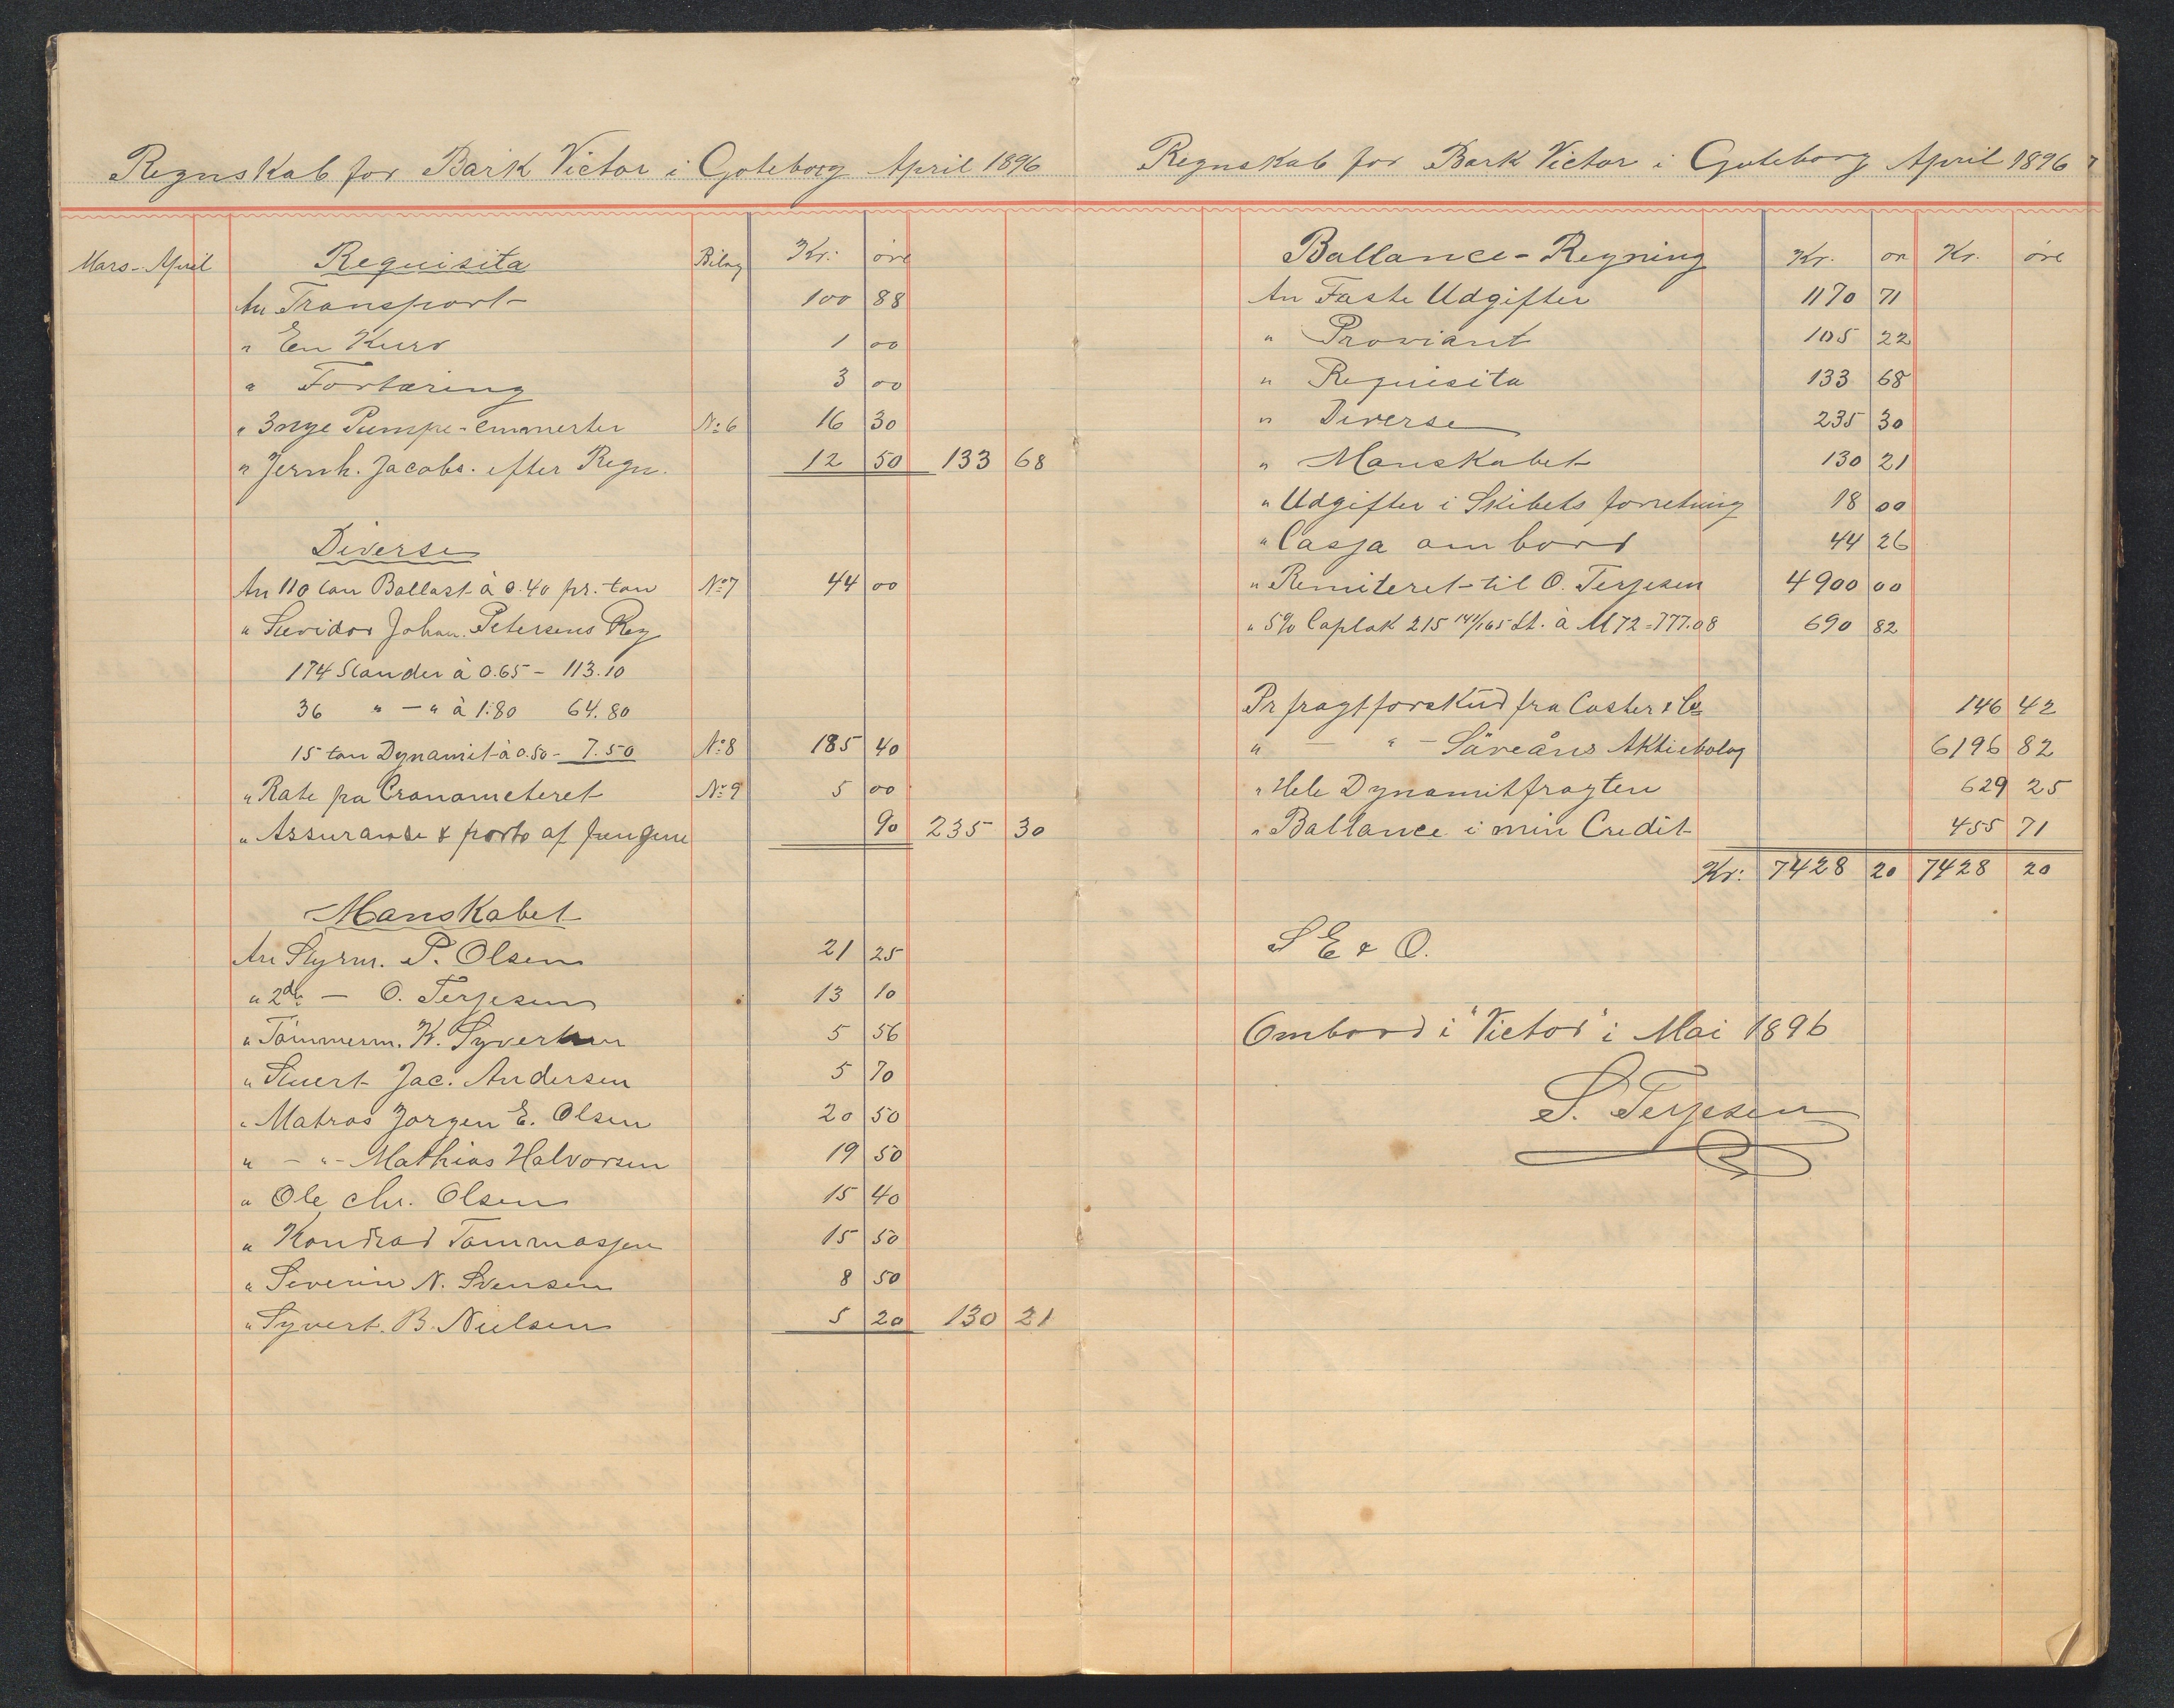 Regnskab for Bark Victor i Goteborg April 1896
Mars-April Requisita Bilag Kr: öre
An Transport 100 88
" En Kurv 1 00
" Fortæring 3 00
" 3 nye Pumpe-emmerter No 6 16 30
" Jernh. Jacobs. efter Regn. 12 50 133 68
Diverse
An 110 ton Ballast à 0.40 pr. ton No 7 44 00
" Stevidor Johan Petersens Reg
174 Stander à 0.65 - 113.10
36 " - " à 1.80 64.80
15 ton Dynamit à 0.50 - 7.50 No 8 185 40
" Rate pa Cronometeret No 9 5 00
" Assuranse & porto af pengene 90 235 30
Manskabet
An Styrm. P. Olsen 21 25
" 2de - O. Terjesen 13 10
" Tömmerm. K. Syvertsen 5 56
" Stuert Jac. Andersen 5 70
" Matros Jorgen E. Olsen 20 50
" - " - Mathias Halvorsen 19 50
" Ole Chr. Olsen 15 40
" Kondrad Tommassen 15 50
" Severin N. Svensen 8 50
" Syvert B. Nielsen 5 20 130 21
Regnskab for Bark Victor i Goteborg April 1896
Ballance-Regning Kr. ör Kr. öre
An Faste Udgifter 1170 71
" Proviant 105 22
" Requisita 133 68
" Diverse 235 30
" Manskabet 130 21
" Udgifter i Skibets forretning 18 00
" Cassa ombord 44 26
" Remiteret til O. Terjesen 4900 00
" 5% Caplak 215 141/165 St. à M 72 = 777.08 690 82
Pr fragtforskud fra Coster & Co 146 42
" - " - Säveåns Aktiebolag 6196 82
" Hele Dynamitfragten 629 25
" Ballance i min Credit 455 71
Kr: 7428 20 7428 20
S E & O.
Ombord i "Victor" i Mai 1896
S. Terjesen